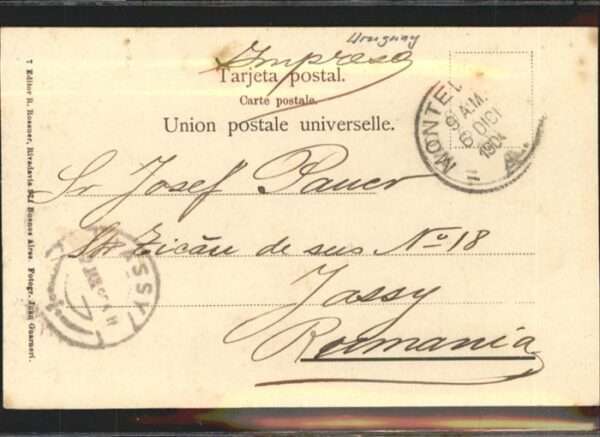 Uruguay
Impreso
Tarjeta postal.
Carte postale.
Union postale universelle.
MONTE
8 A.M.
6 DICI
1904
Sr Josef Pauer
Str Zicău de sus No 18
Jassy
Roumania
7 Editor R. Rosauer, Rivadavia 571 Buenos Aires. Fotogr. Juan Guarneri.